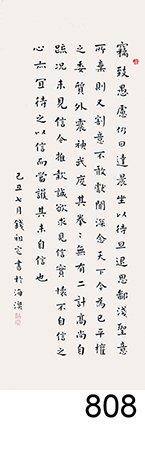 竊致愚慮仍日達晨坐以待旦退思鄙淺聖意
所棄則又割意不敢獻聞深念天下今為已平權
之委質外震神武度其拳拳無有二計高尚自
疏況未見信今推款誠欲求見信實懷不自信之
心亦宜待之以信而當護其未自信也
己丑七月錢祖 書於海濱
808